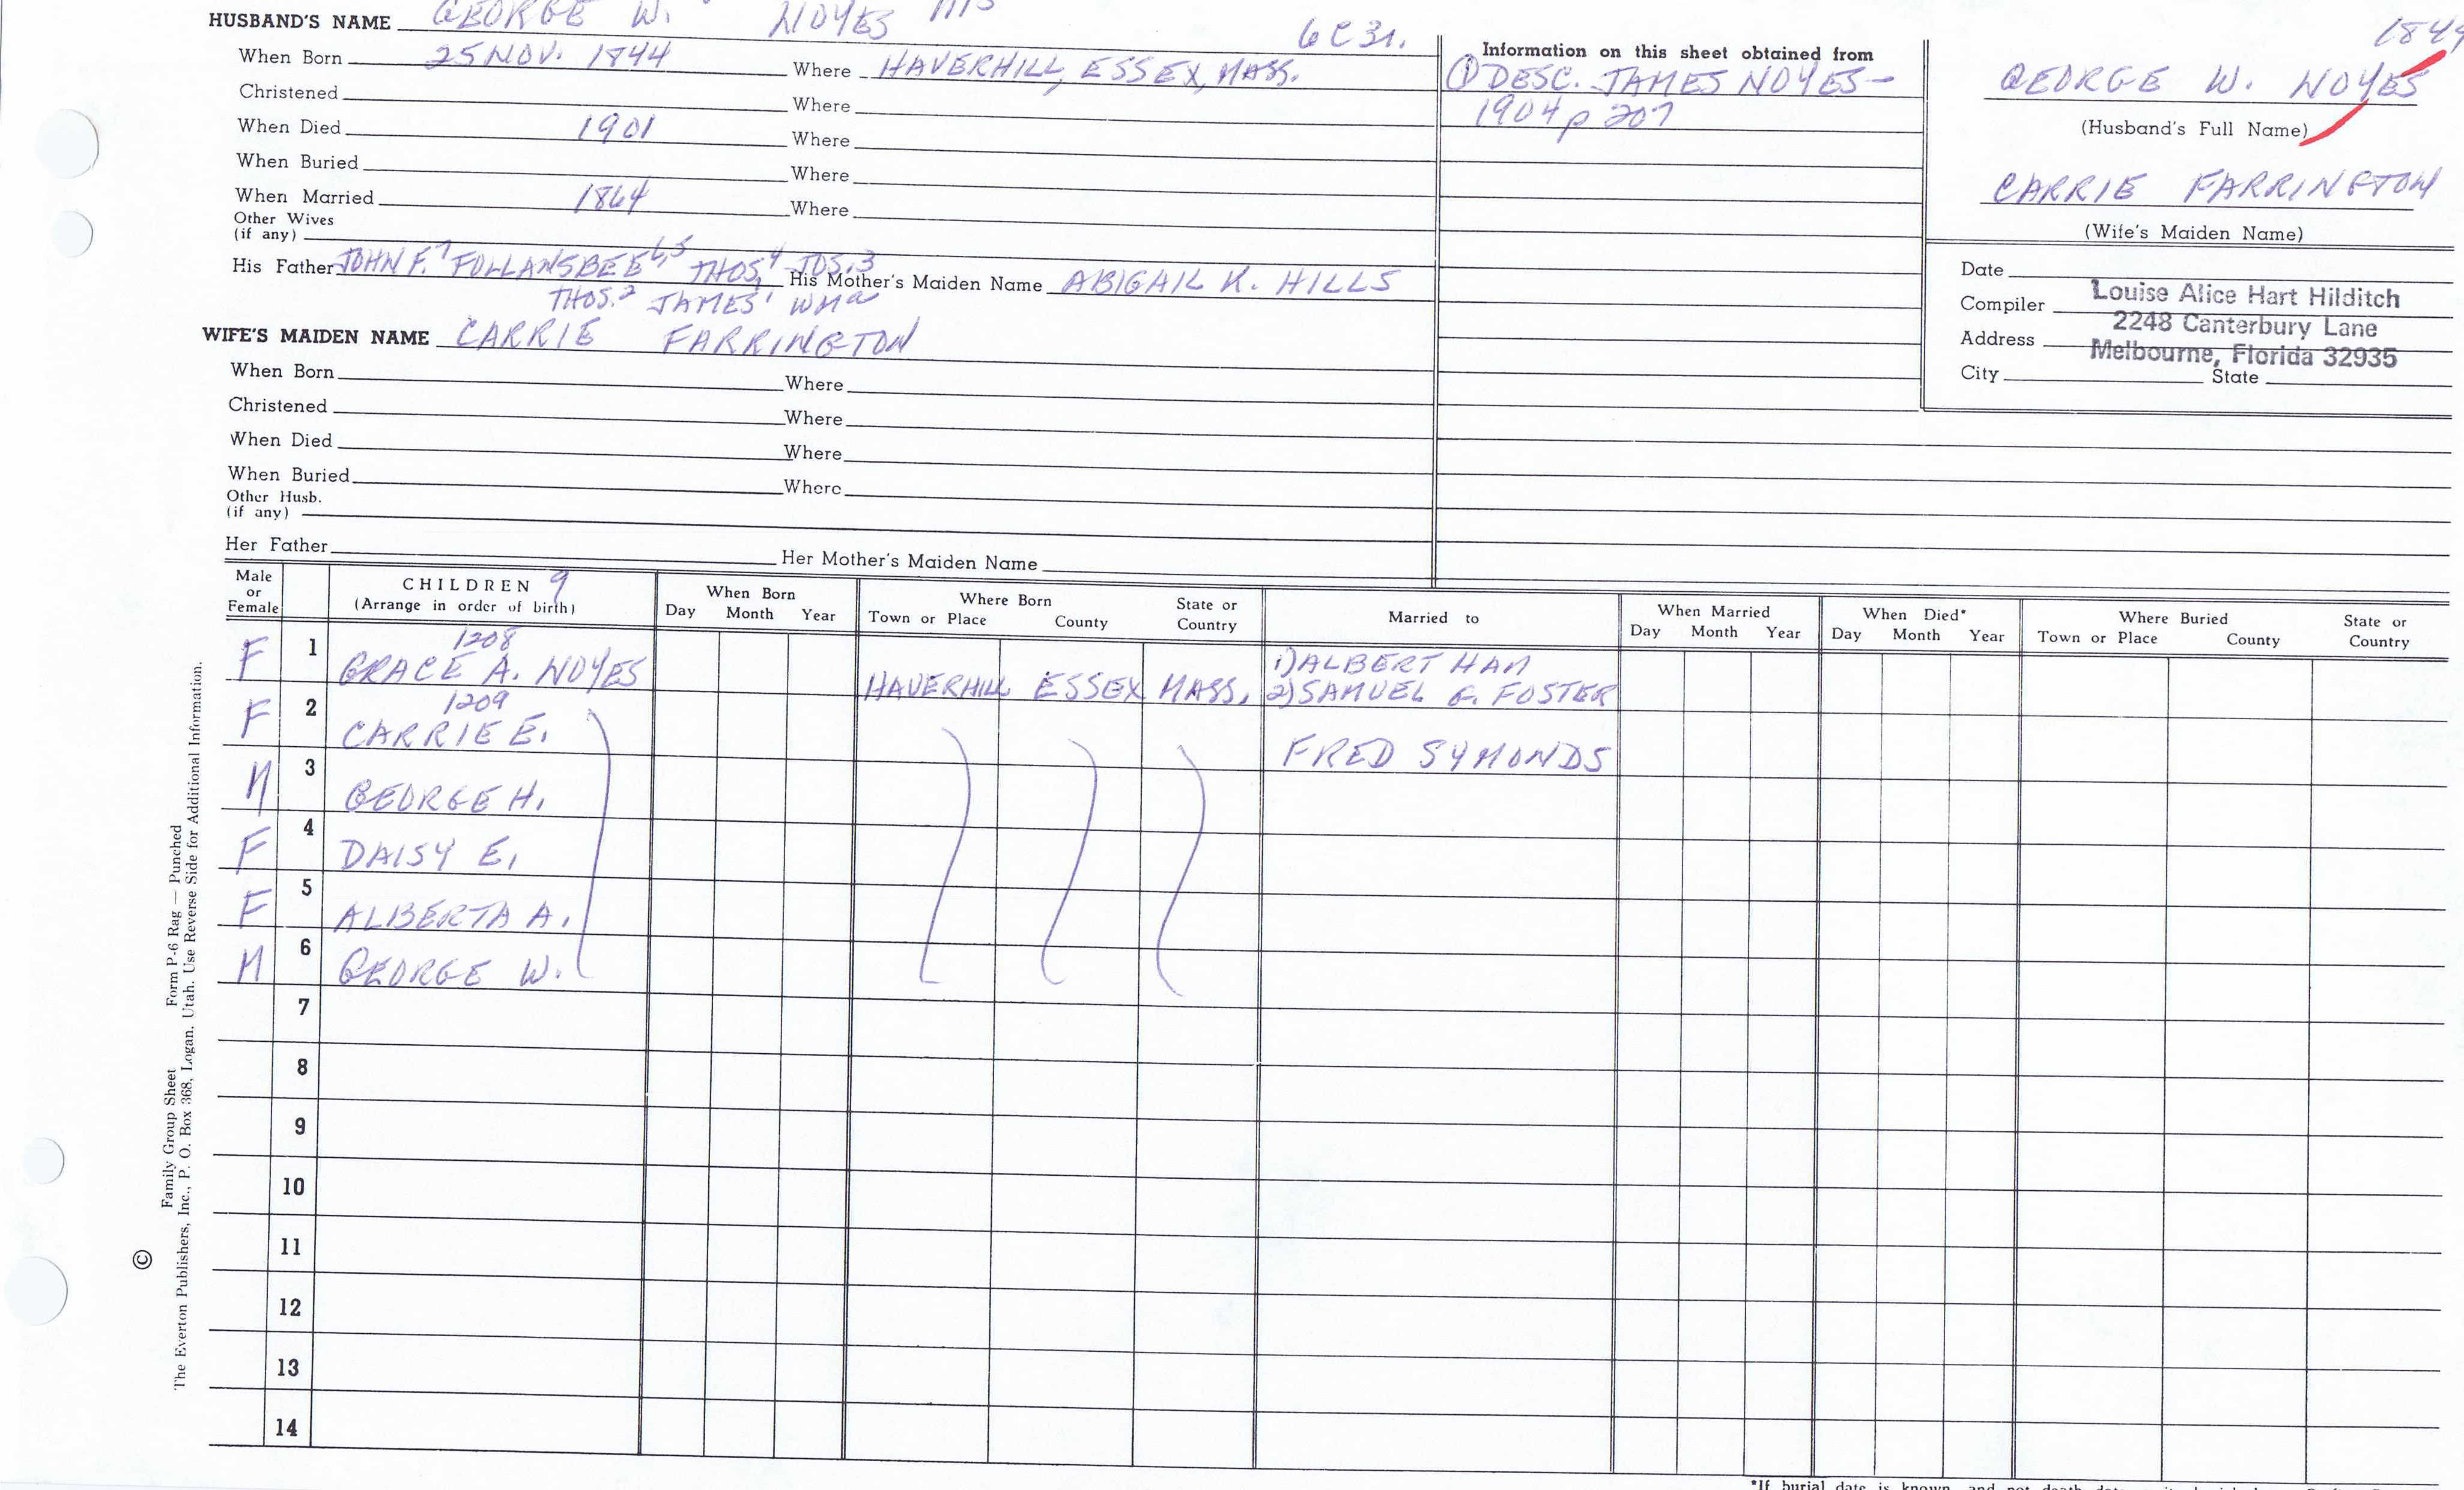 HUSBAND'S NAME GEORGE W. NOYES
6C31.
When Born 25 NOV. 1844 Where HAVERHILL, ESSEX, MASS.
Christened Where
When Died 1901 Where
When Buried Where
When Married 1864 Where
Other Wives
(if any)
His Father JOHN F.7 FOLLANSBEE6,5 THOS,4 JOS.3 His Mother's Maiden Name ABIGAIL K. HILLS
THOS.2 JAMES1 WMa
WIFE'S MAIDEN NAME CARRIE FARRINGTON
When Born Where
Christened Where
When Died Where
When Buried Where
Other Husb.
(if any)
Her Father Her Mother's Maiden Name
Information on this sheet obtained from
① DESC. JAMES NOYES-
1904 p 207
1844
GEORGE W. NOYES
(Husband's Full Name)
CARRIE FARRINGTON
(Wife's Maiden Name)
Date
Compiler Louise Alice Hart Hilditch
Address 2248 Canterbury Lane
Melbourne, Florida 32935
City State
Male or Female CHILDREN 9 (Arrange in order of birth) When Born Day Month Year Where Born Town or Place County State or Country Married to When Married Day Month Year When Died* Day Month Year Where Buried Town or Place County State or Country
F 1 1208 GRACE A. NOYES HAVERHILL ESSEX MASS. 1) ALBERT HAM
2) SAMUEL G. FOSTER
F 2 1209 CARRIE E. FRED SYMONDS
M 3 GEORGE H.
F 4 DAISY E.
F 5 ALBERTA A.
M 6 GEORGE W.
7
8
9
10
11
12
13
14
© Family Group Sheet Form P-6 Rag — Punched
The Everton Publishers, Inc., P. O. Box 368, Logan, Utah. Use Reverse Side for Additional Information.
*If burial date is known and not death date